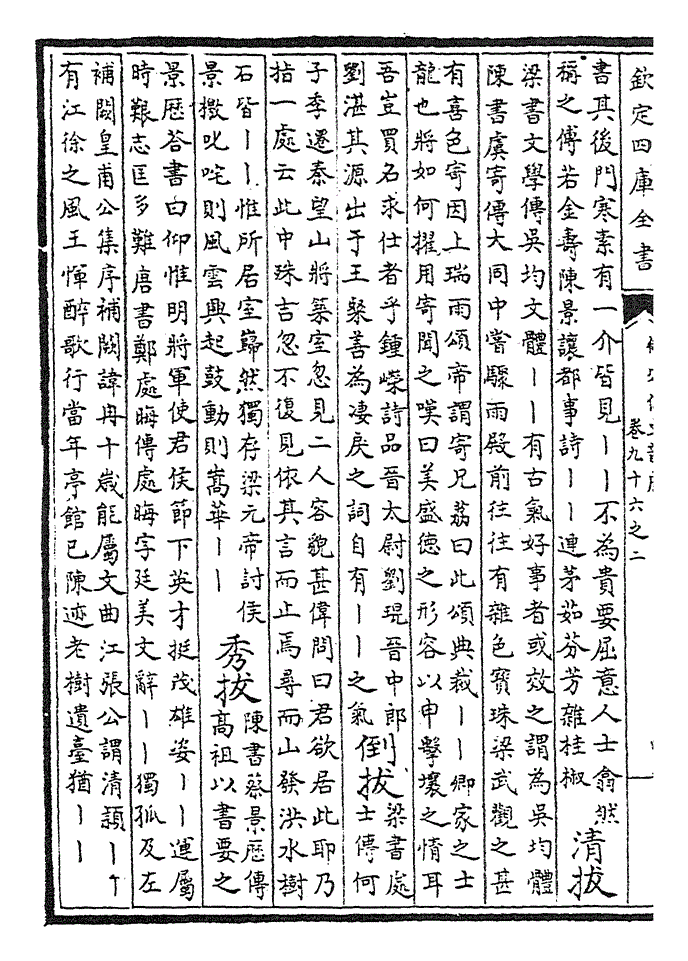 欽定四庫全書
卷九十六之二
書其後門寒素有一介皆見丨丨不為貴要屈意人士翕然
稱之傅若金壽陳景讓都事詩丨丨連茅茹芬芳雜桂椒
清拔
梁書文學傳吳均文體丨丨有古氣好事者或效之謂為吳均體
陳書虞寄傳大同中嘗驟雨殿前往往有雜色寶珠梁武觀之甚
有喜色寄因上瑞雨頌帝謂寄兄荔曰此頌典裁丨丨卿家之士
龍也將如何擢用寄聞之嘆曰美盛德之形容以申擊壤之情耳
吾豈買名求仕者乎鍾嶸詩品晉太尉劉琨晉中郎
劉湛其源出于王粲善為凄戾之詞自有丨丨之氣
倒拔
梁書處
士傳何
子季遷秦望山將築室忽見二人容貌甚偉問曰君欲居此耶乃
指一處云此中殊吉忽不復見依其言而止焉尋而山發洪水樹
石皆丨丨惟所居室巋然獨存梁元帝討侯
景檄叱咤則風雲興起鼓動則嵩華丨丨
秀拔
陳書蔡景歴傳
高祖以書要之
景歴答書曰仰惟明將軍使君侯節下英才挺茂雄姿丨丨運屬
時艱志匡多難唐書鄭處晦傳處晦字廷美文辭丨丨獨孤及左
補闕皇甫公集序補闕諱冉十歲能屬文曲江張公謂清穎丨丨
有江徐之風王惲醉歌行當年亭館已陳迹老樹遺臺猶丨丨